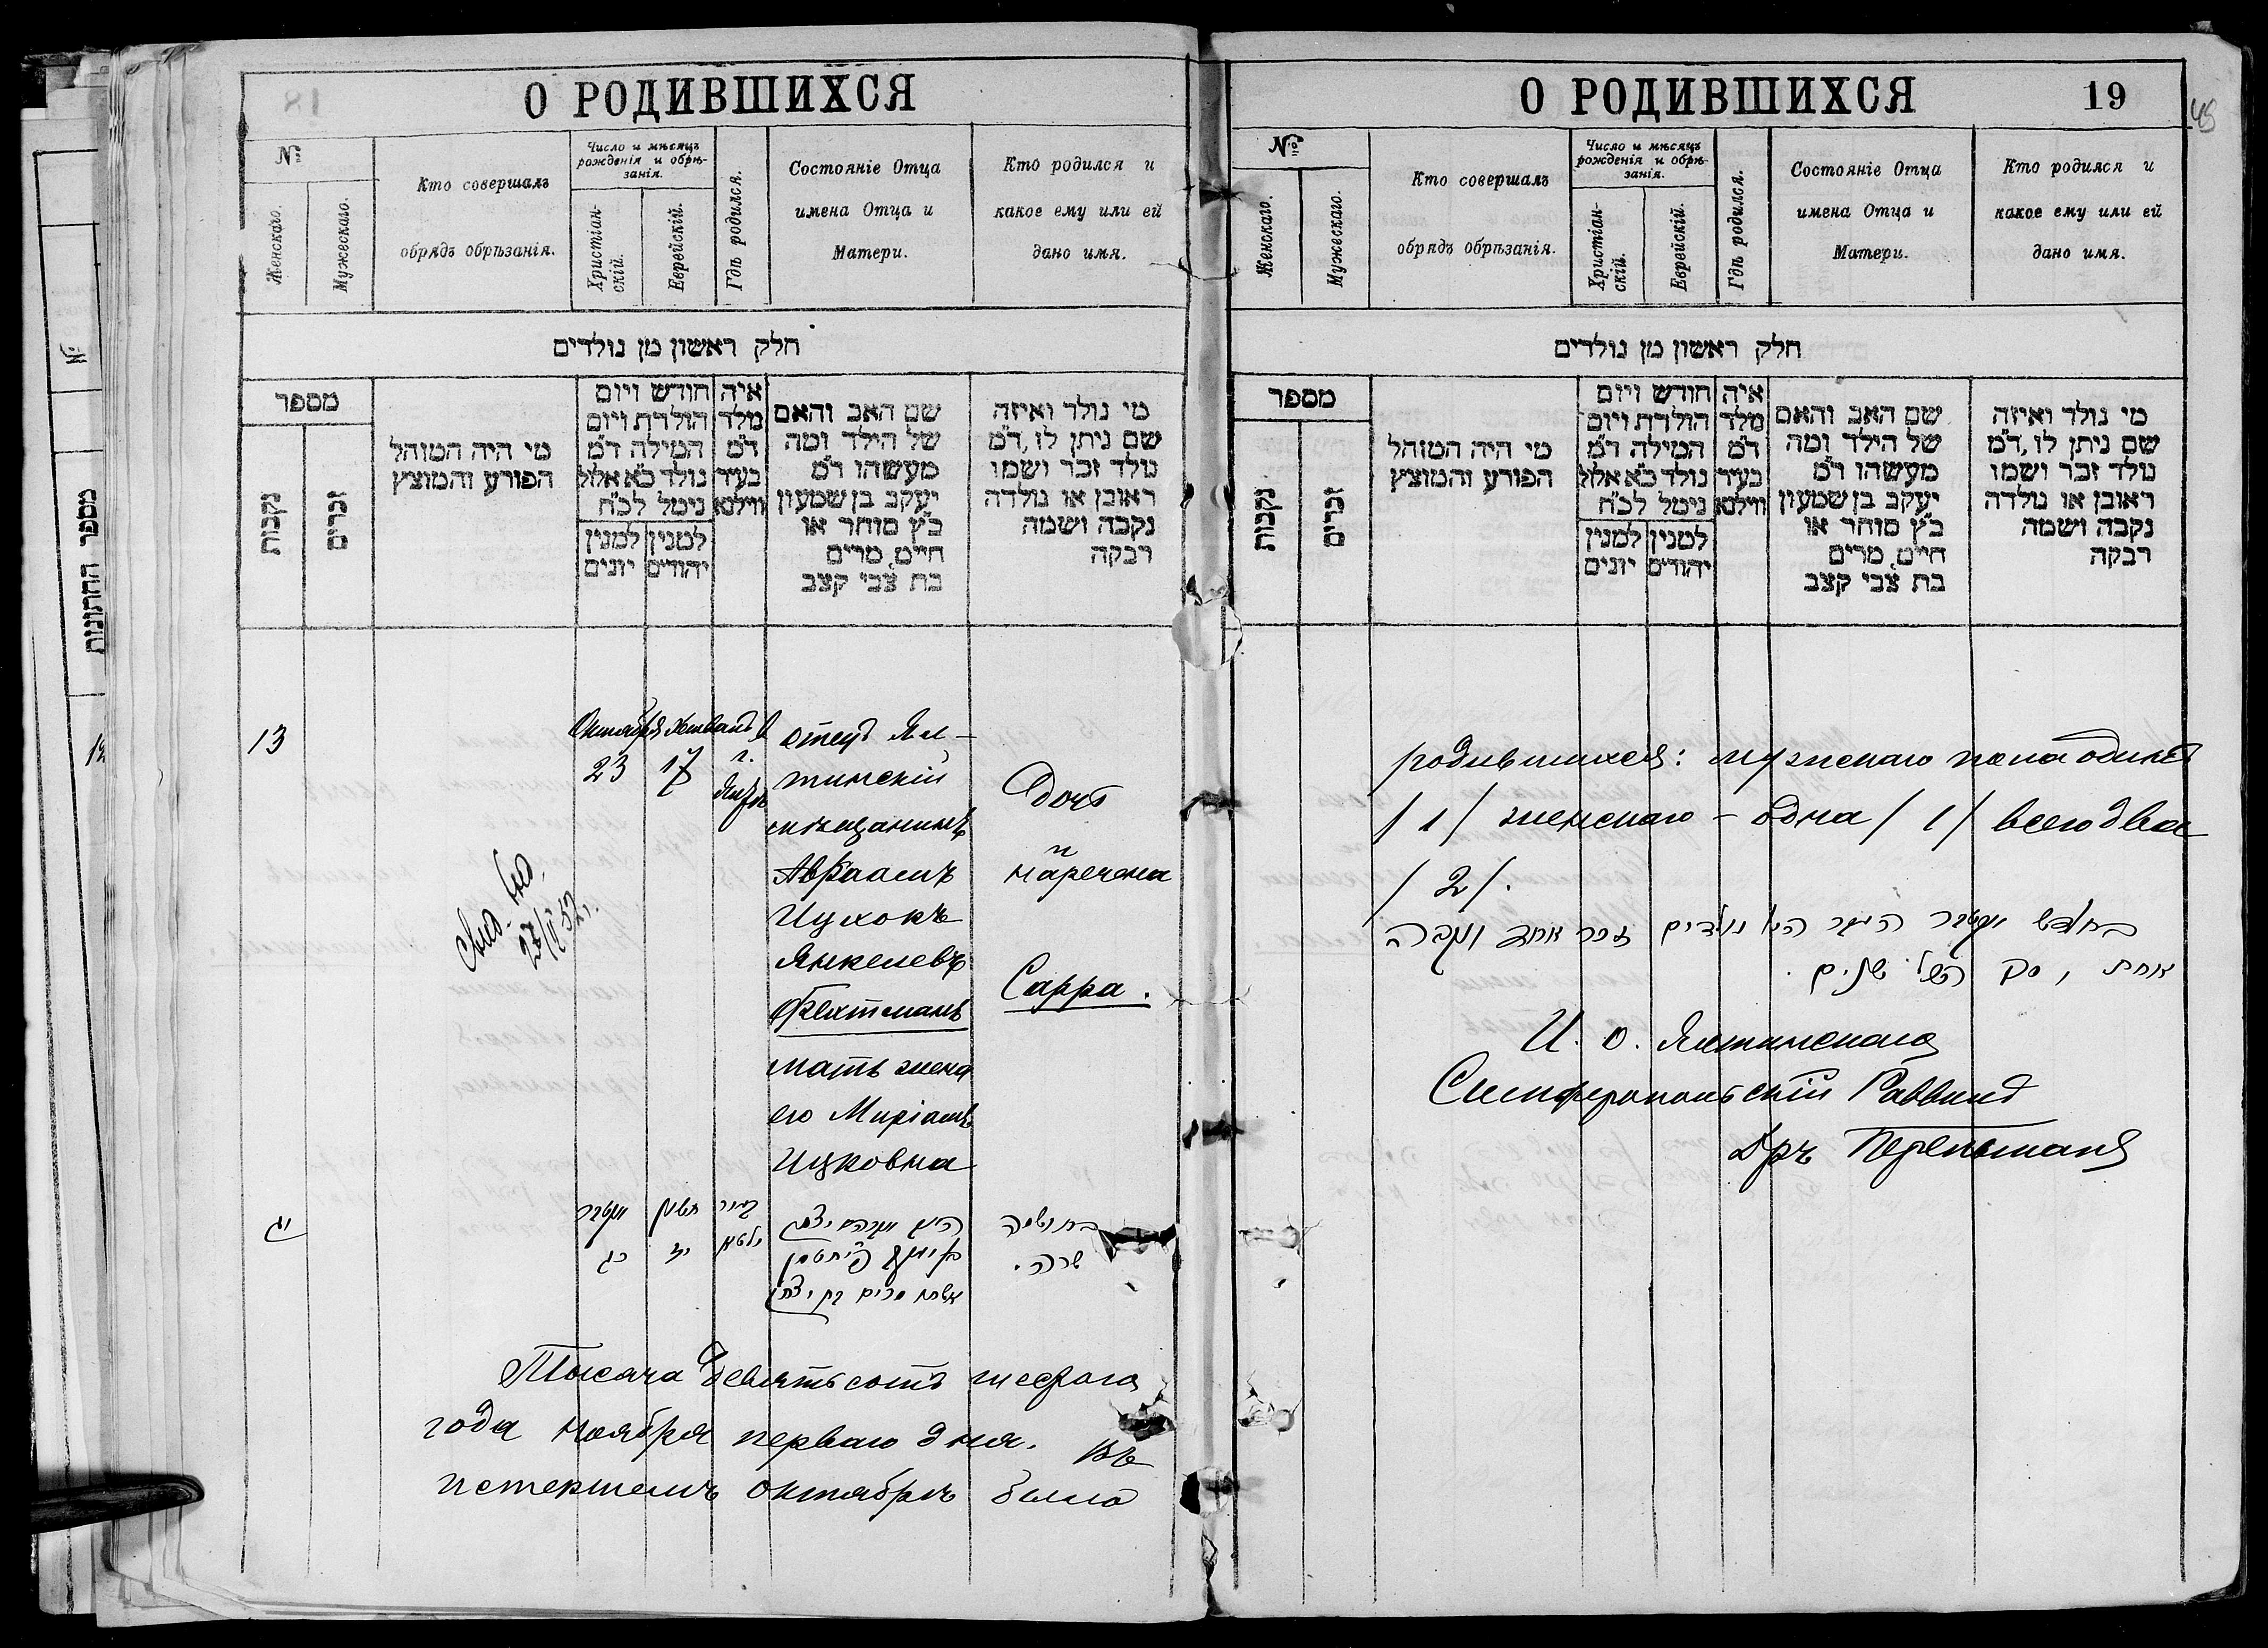 О РОДИВШИХСЯ
№
Женскаго.
Мужескаго.
Кто совершалъ
обрядъ обрѣзанія.
Число и мѣсяцъ
рожденія и обрѣ-
занія.
Христіан-
скій.
Еврейскій.
Гдѣ родился.
Состояніе Отца
имена Отца и
Матери.
Кто родился и
какое ему или ей
дано имя.
חלק ראשון מן נולדים
מספר
נקבות
זכרים
מי היה המוהל
הפורע והמוצץ
חודש ויום
הולדת ויום
המילה ד״מ
נולד כ״א אלול
ניטל לכ״ח
למנין למנין
יהודים יונים
איה
מלד
ד״מ
בעיר
ווילנא
שם האב והאם
של הילד ומה
מעשהו ד״מ
יעקב בן שמעון
כ״ץ סוחר או
חייט, מרים
בת צבי קצב
מי נולד ואיזה
שם ניתן לו, ד״מ
נולד זכר ושמו
ראובן או נולדה
נקבה ושמה
רבקה
13
Октября
23
17
г.
отецъ Ял-
тинскій
мѣщанинъ
Авраамъ
Ицхокъ
Янкелевъ
Фехтманъ
мать жена
его Миріамъ
Ицковна
Дочь
наречена
Сарра.
27/II 52 г.
יג
כג
יז
חשון
יצחק
שרה.
Тысяча девятьсотъ шестого
года Ноября перваго дня. Въ
истекшемъ октябрѣ было
О РОДИВШИХСЯ
19
№
Женскаго.
Мужескаго.
Кто совершалъ
обрядъ обрѣзанія.
Число и мѣсяцъ
рожденія и обрѣ-
занія.
Христіан-
скій.
Еврейскій.
Гдѣ родился.
Состояніе Отца
имена Отца и
Матери.
Кто родился и
какое ему или ей
дано имя.
חלק ראשון מן נולדים
מספר
נקבות
זכרים
מי היה המוהל
הפורע והמוצץ
חודש ויום
הולדת ויום
המילה ד״מ
נולד כ״א אלול
ניטל לכ״ח
למנין למנין
יהודים יונים
איה
מלד
ד״מ
בעיר
ווילנא
שם האב והאם
של הילד ומה
מעשהו ד״מ
יעקב בן שמעון
כ״ץ סוחר או
חייט, מרים
בת צבי קצב
מי נולד ואיזה
שם ניתן לו, ד״מ
נולד זכר ושמו
ראובן או נולדה
נקבה ושמה
רבקה
родившихся: мужскаго пола одинъ
/1/ женскаго – одна /1/ всего два
/2/.
נולדים זכר אחד ונקבה
אחת, סך הכל שנים.
И. о. Ялтинскаго
Симферопольскій Раввинъ
Д-ръ Перельманъ